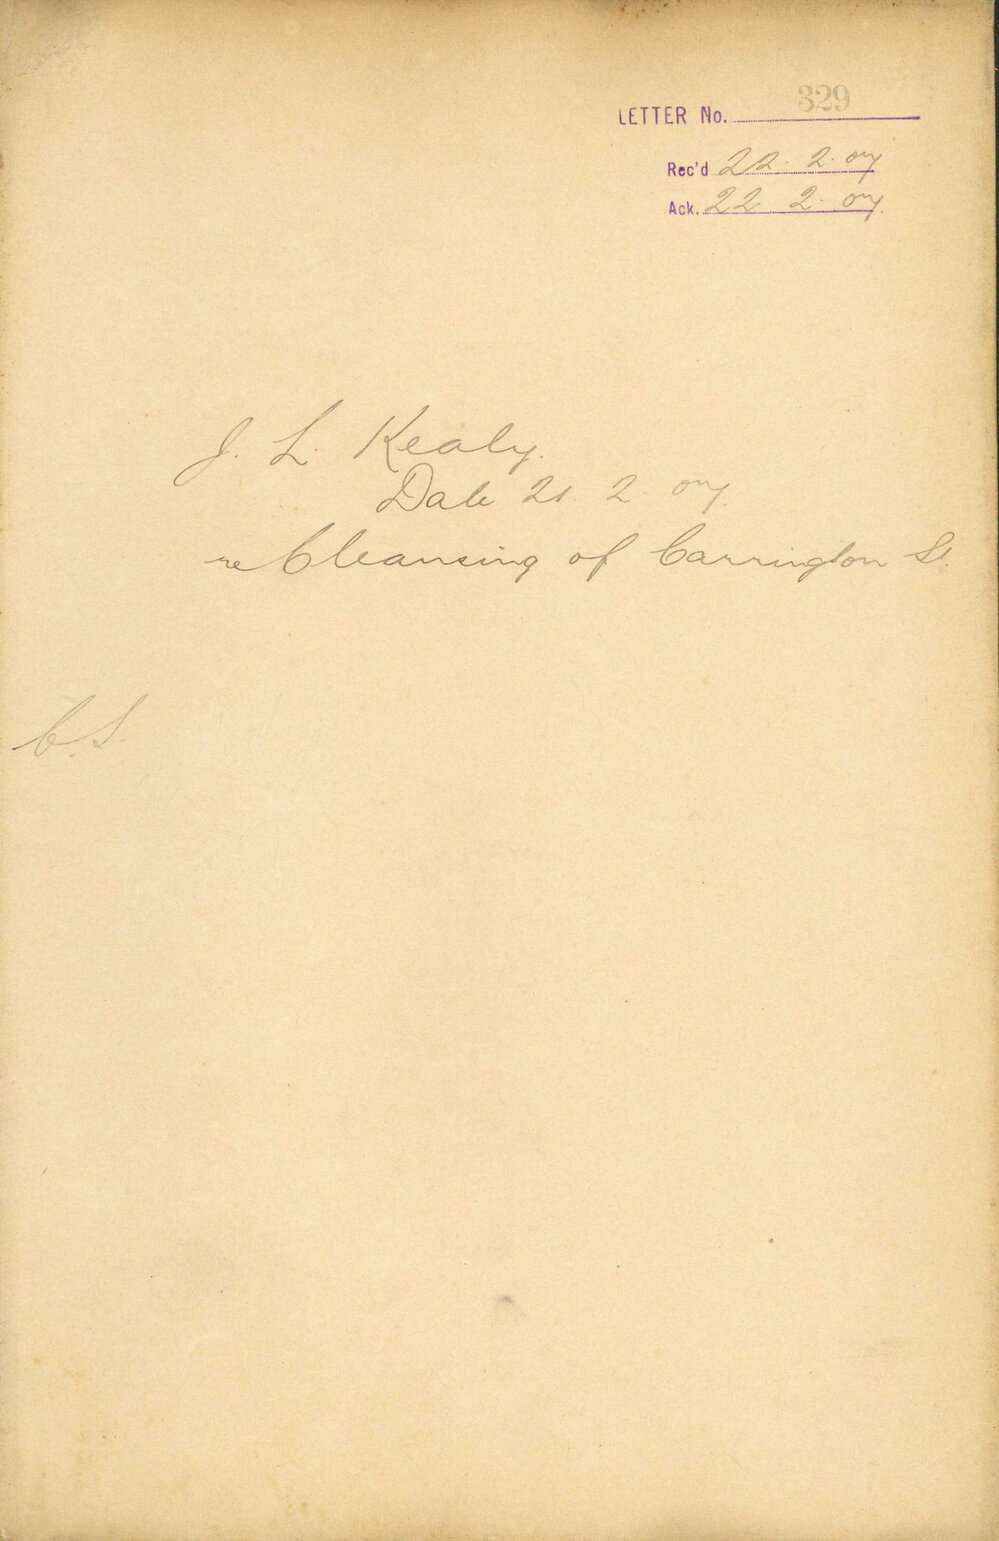 LETTER No. 329
Rec'd 22. 2. 07
Ack. 22 2. 07.
J. L. Kealy.
Date 21. 2. 07.
re Cleansing of Carrington St.
C.S.